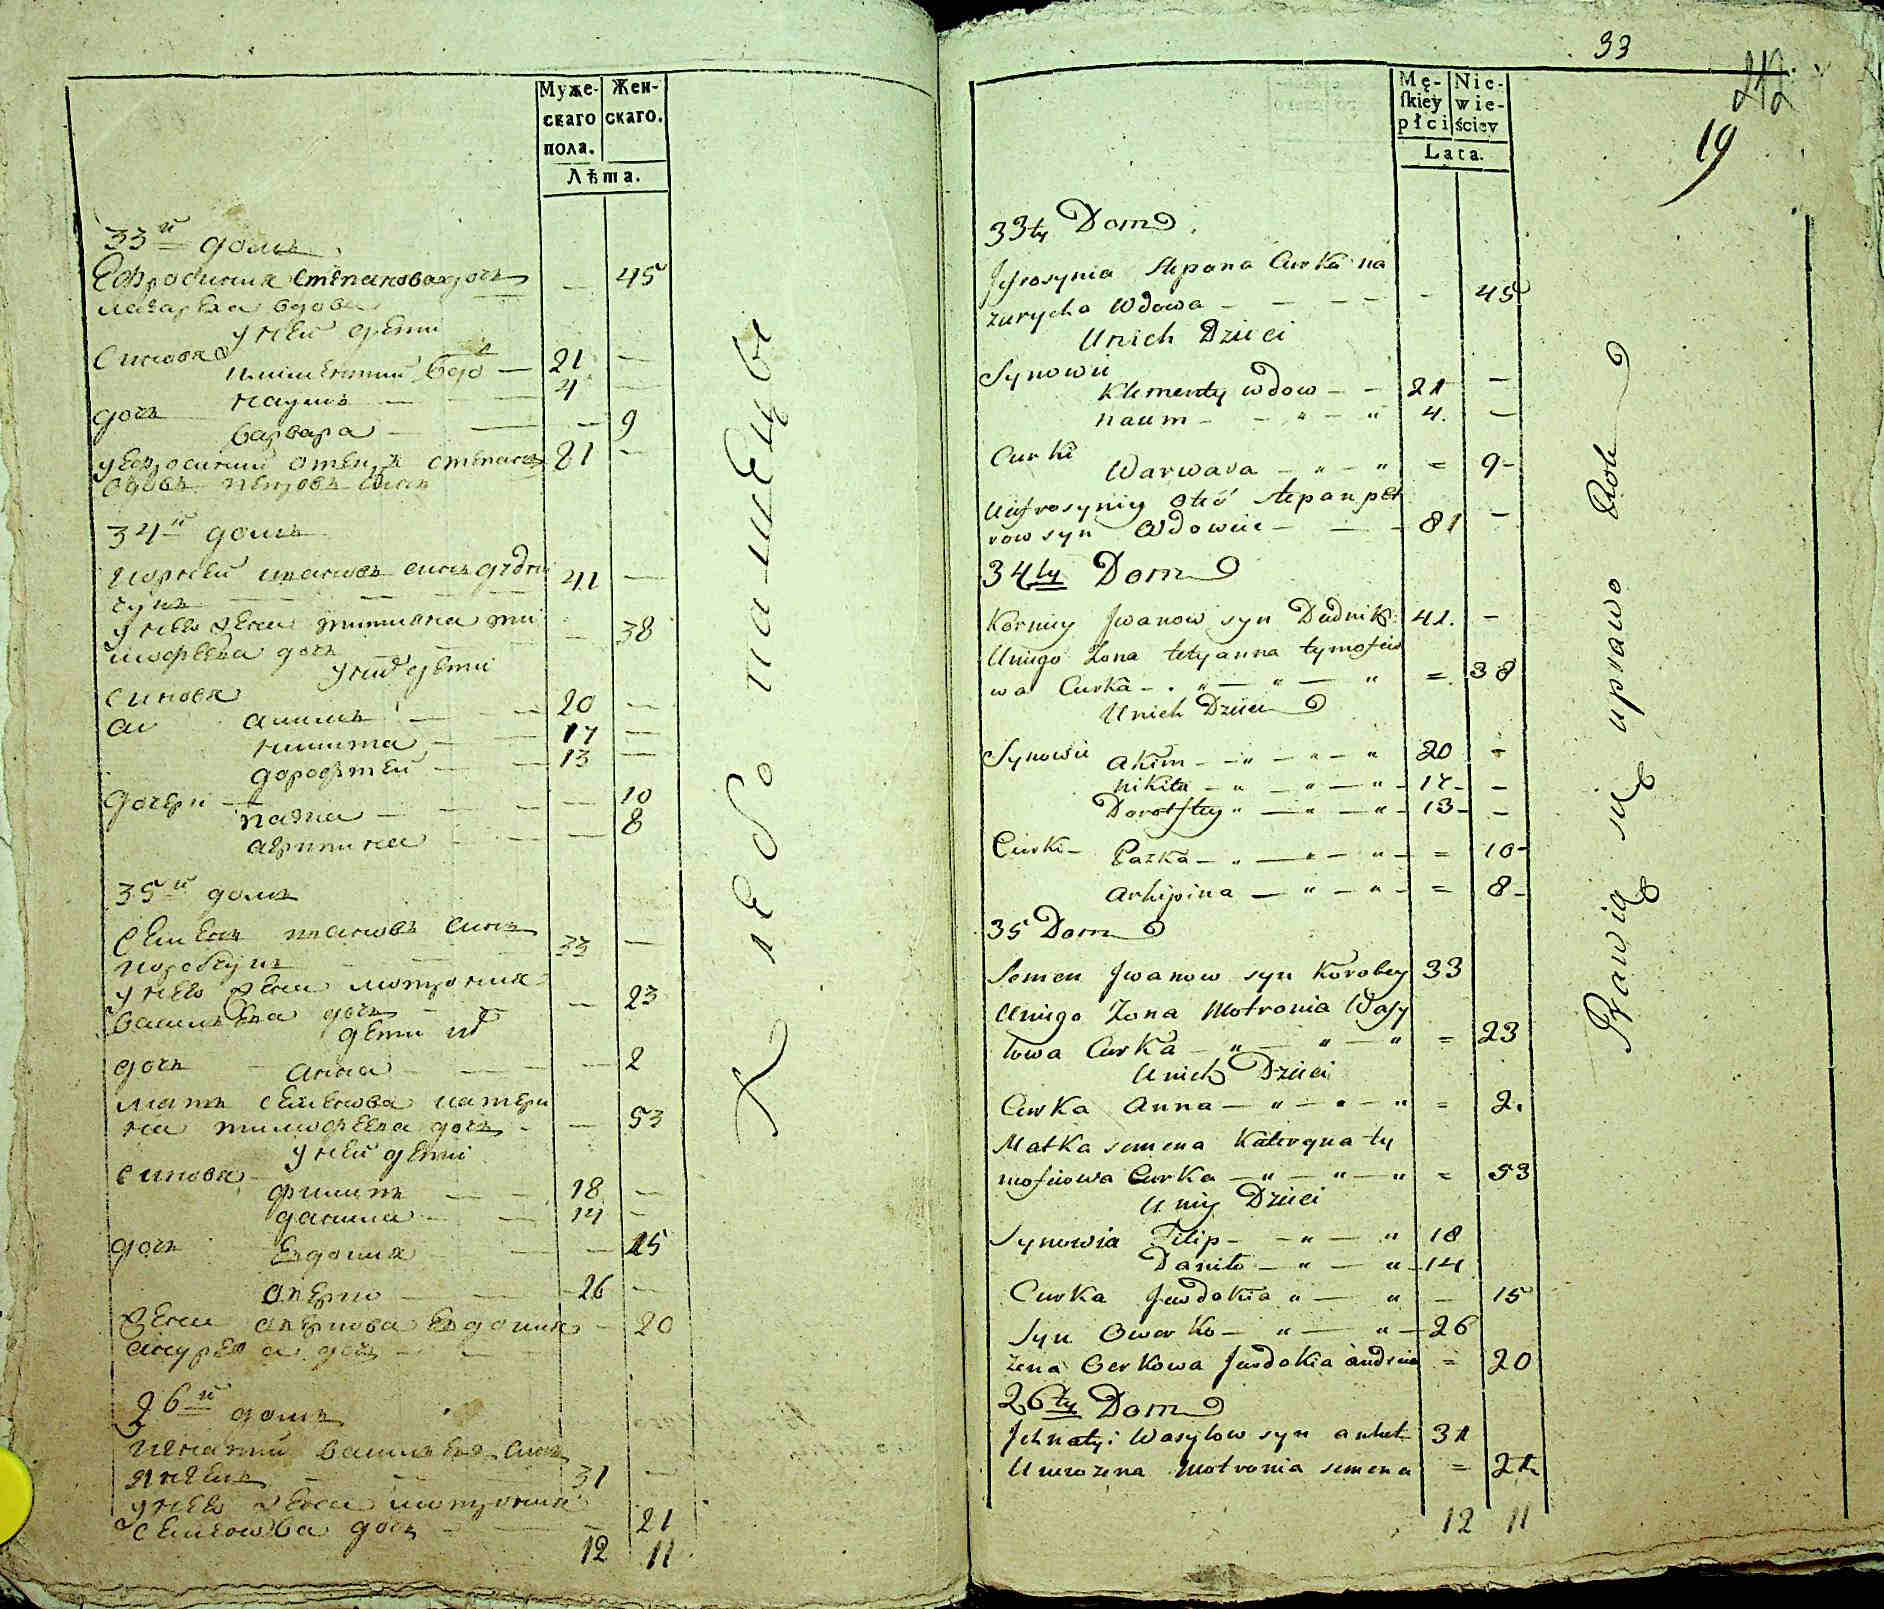 Муже-
скаго
пола.
Жен-
скаго.
Лѣта.
33й домъ
Ефросиния степанова дочь
назарева вдова
45
у неи дети
Синовя
климентий вдо
21
наумъ
4
дочь
варвара
9
у ефросинии отецъ степанъ
вдовъ петровъ синъ
81
34й домъ
Корней ивановъ синъ дудни
чукъ
41
у нево жена титиана ти
мофеева дочь
38
у них дети
Синовя
акимъ
20
никита
17
дорофтей
13
Дочери
пазка
10
агрипина
8
35й домъ
Семенъ ивановъ синъ
33
у нево жена мотрония
василева дочь
23
дети их
дочь
анна
2
мать семенова катери
на тимофеева дочь
53
у ней дети
Синовя
филипъ
18
данила
14
дочь
Евдокия
15
оверко
26
Жена оверкова Евдокия
20
26й домъ
Игнатий василевъ синъ
31
у нево жена мотрония
семенова дочь
21
12 11
хлебо пашецы
33
212
19
Mę-
skiey
płci
Nie-
wie-
ściey
Lata.
33ty Dom
Jfrosynia Stepana Curka na
zurycha Wdowa - 45
Unich Dzieci
Synowie
Klementy wdow - 21 -
naum - 4. -
Curki
Warwara = 9-
Uufrosyniy otec stepan pet
row syn Wdowiec - 81 -
34ty Dom
Korniey Jwanow syn Dudnik 41. -
Uniego Zona tetyanna tymofeio
wa Curka = 38
Unich Dzieci
Synowie akim 20 -
nikita 17 -
Doroftey 13 -
Curki Pazka = 10-
arhipina = 8-
35 Dom
Semen Jwanow syn Korobey 33
Uniego Zona Motronia Wasy
lowa Curka = 23
Unich Dzieci
Curka Anna = 2.
Matka semena Kateryna ty
mofiowa Curka = 53
Uniy Dzieci
Synowia Filip 18
Danilo 14
Curka Jewdokia - 15
Syn Owerko 26
zena Oerkowa Jewdokia andreie = 20
26ty Dom
Jchnatyi Wasylow syn 31
Motronia semena = 21
12 11
Prawią się uprawo Roli